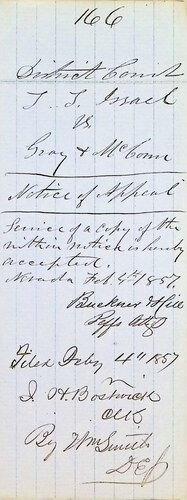 166
District Court
T. T. Israel
vs
Gray & McConn
Notice of Appeal
Service of a copy of the
within notice is hereby
accepted.
Nevada Feb. 4th 1857.
Buckner & Hill
Plffs Attys
Filed Feby 4th 1857
J. H. Bostwick
Clk
By Wm Smith
D.C.